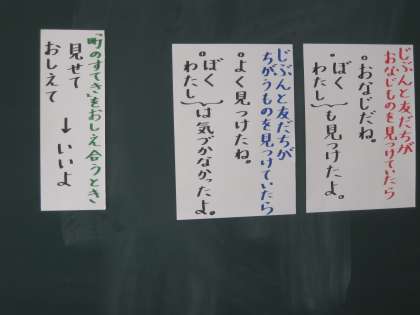 じぶんと友だちが
おなじものを見つけていたら
。おなじだね。
。ぼく
わたし}も見つけたよ。
じぶんと友だちが
ちがうものを見つけていたら
。よく見つけたね。
。ぼく
わたし}は気づかなかったよ。
「町のすてき」をおしえ合うとき
見せて
おしえて → いいよ